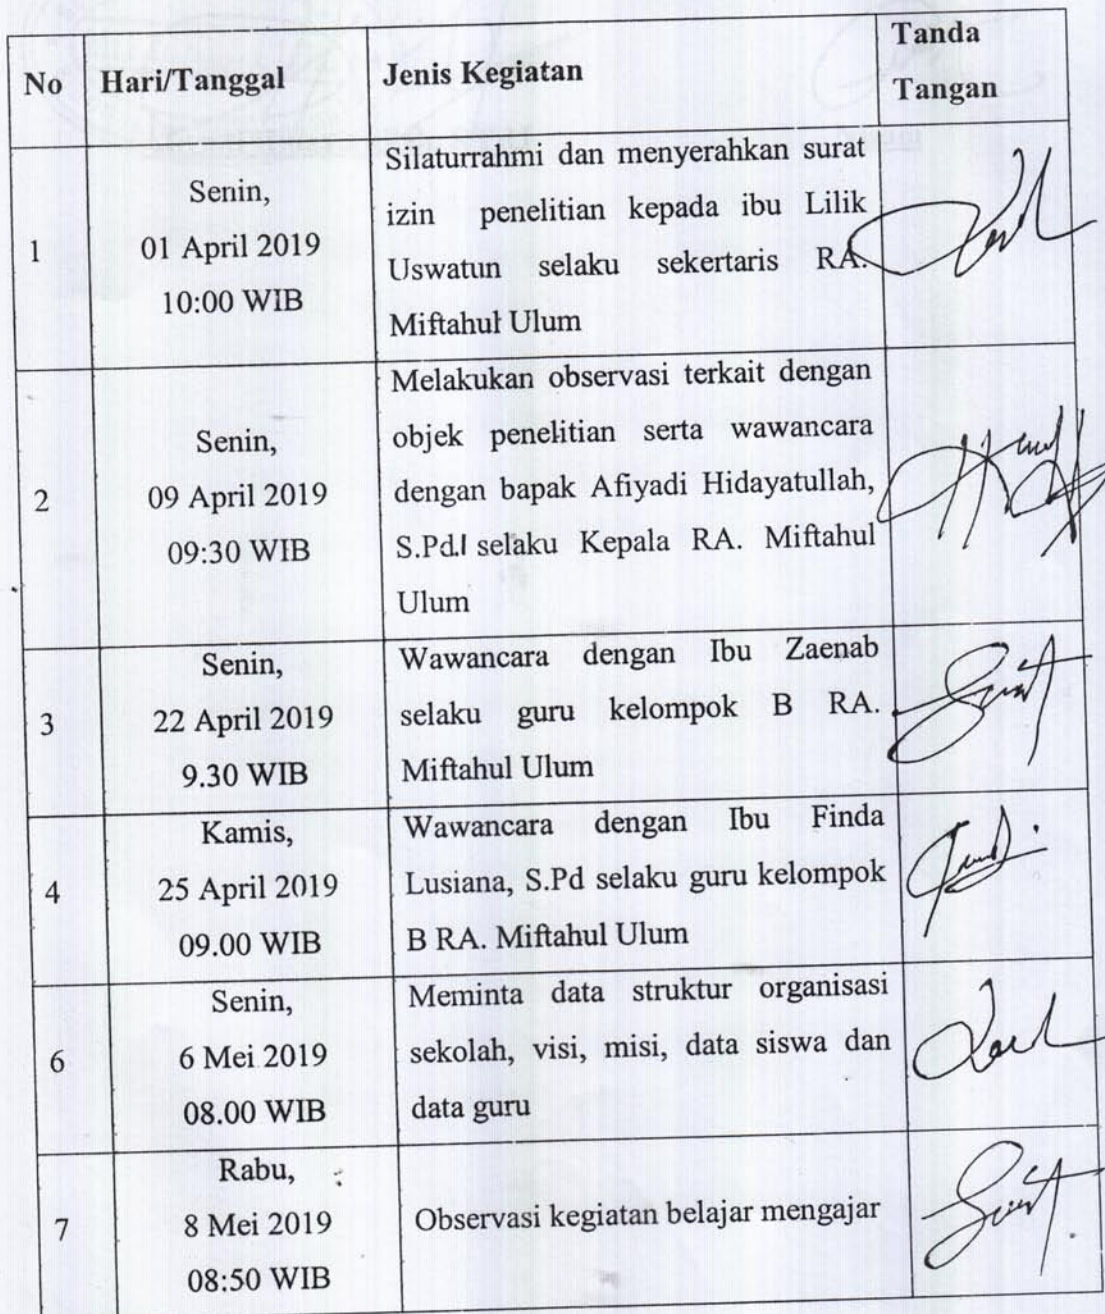 No Hari/Tanggal Jenis Kegiatan Tanda Tangan
1
Senin,
01 April 2019
10:00 WIB
Silaturrahmi dan menyerahkan surat
izin penelitian kepada ibu Lilik
Uswatun selaku sekertaris RA.
Miftahul Ulum
2
Senin,
09 April 2019
09:30 WIB
Melakukan observasi terkait dengan
objek penelitian serta wawancara
dengan bapak Afiyadi Hidayatullah,
S.Pd.I selaku Kepala RA. Miftahul
Ulum
3
Senin,
22 April 2019
9.30 WIB
Wawancara dengan Ibu Zaenab
selaku guru kelompok B RA.
Miftahul Ulum
4
Kamis,
25 April 2019
09.00 WIB
Wawancara dengan Ibu Finda
Lusiana, S.Pd selaku guru kelompok
B RA. Miftahul Ulum
6
Senin,
6 Mei 2019
08.00 WIB
Meminta data struktur organisasi
sekolah, visi, misi, data siswa dan
data guru
7
Rabu,
8 Mei 2019
08:50 WIB
Observasi kegiatan belajar mengajar